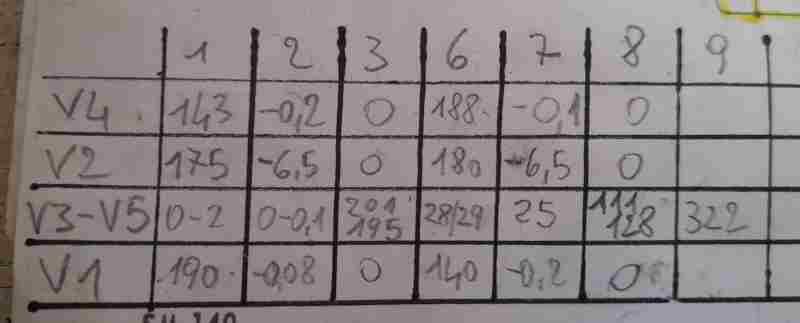 1 2 3 6 7 8 9
V4 143 -0,2 0 188 -0,1 0
V2 175 -6,5 0 180 -6,5 0
V3-V5 0-2 0-0,1 201 195 28/29 25 111 128 322
V1 190 -0,08 0 140 -0,2 0